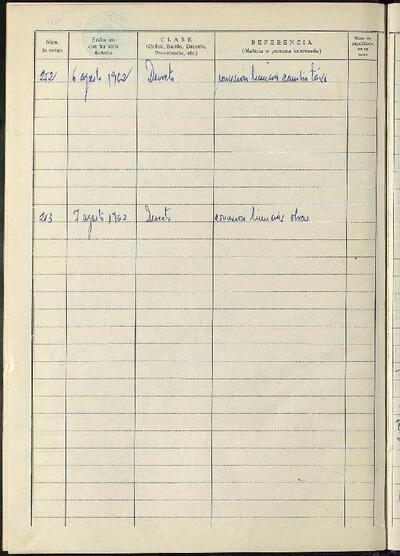 Núm. de orden
Fecha en que ha sido dictado
CLASE
(Orden, Bando, Decreto, Providencia, etc.)
REFERENCIA
(Materia o persona interesada)
Núm. de
en su caso
212 6 agosto 1962 Decreto concesión licencia cambio taxi
213 7 agosto 1962 Decreto concesion licencias obras